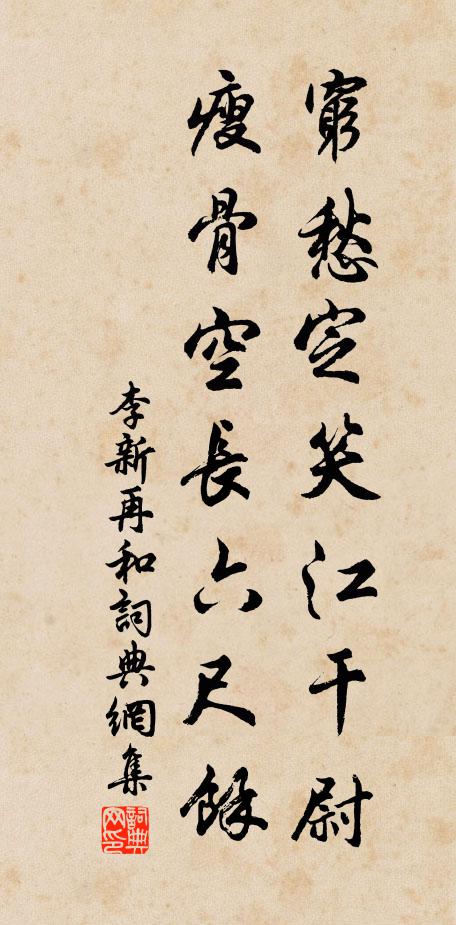 窮愁定笑江干尉
瘦骨空長六尺餘
李新再和詞典網集
詞典網印